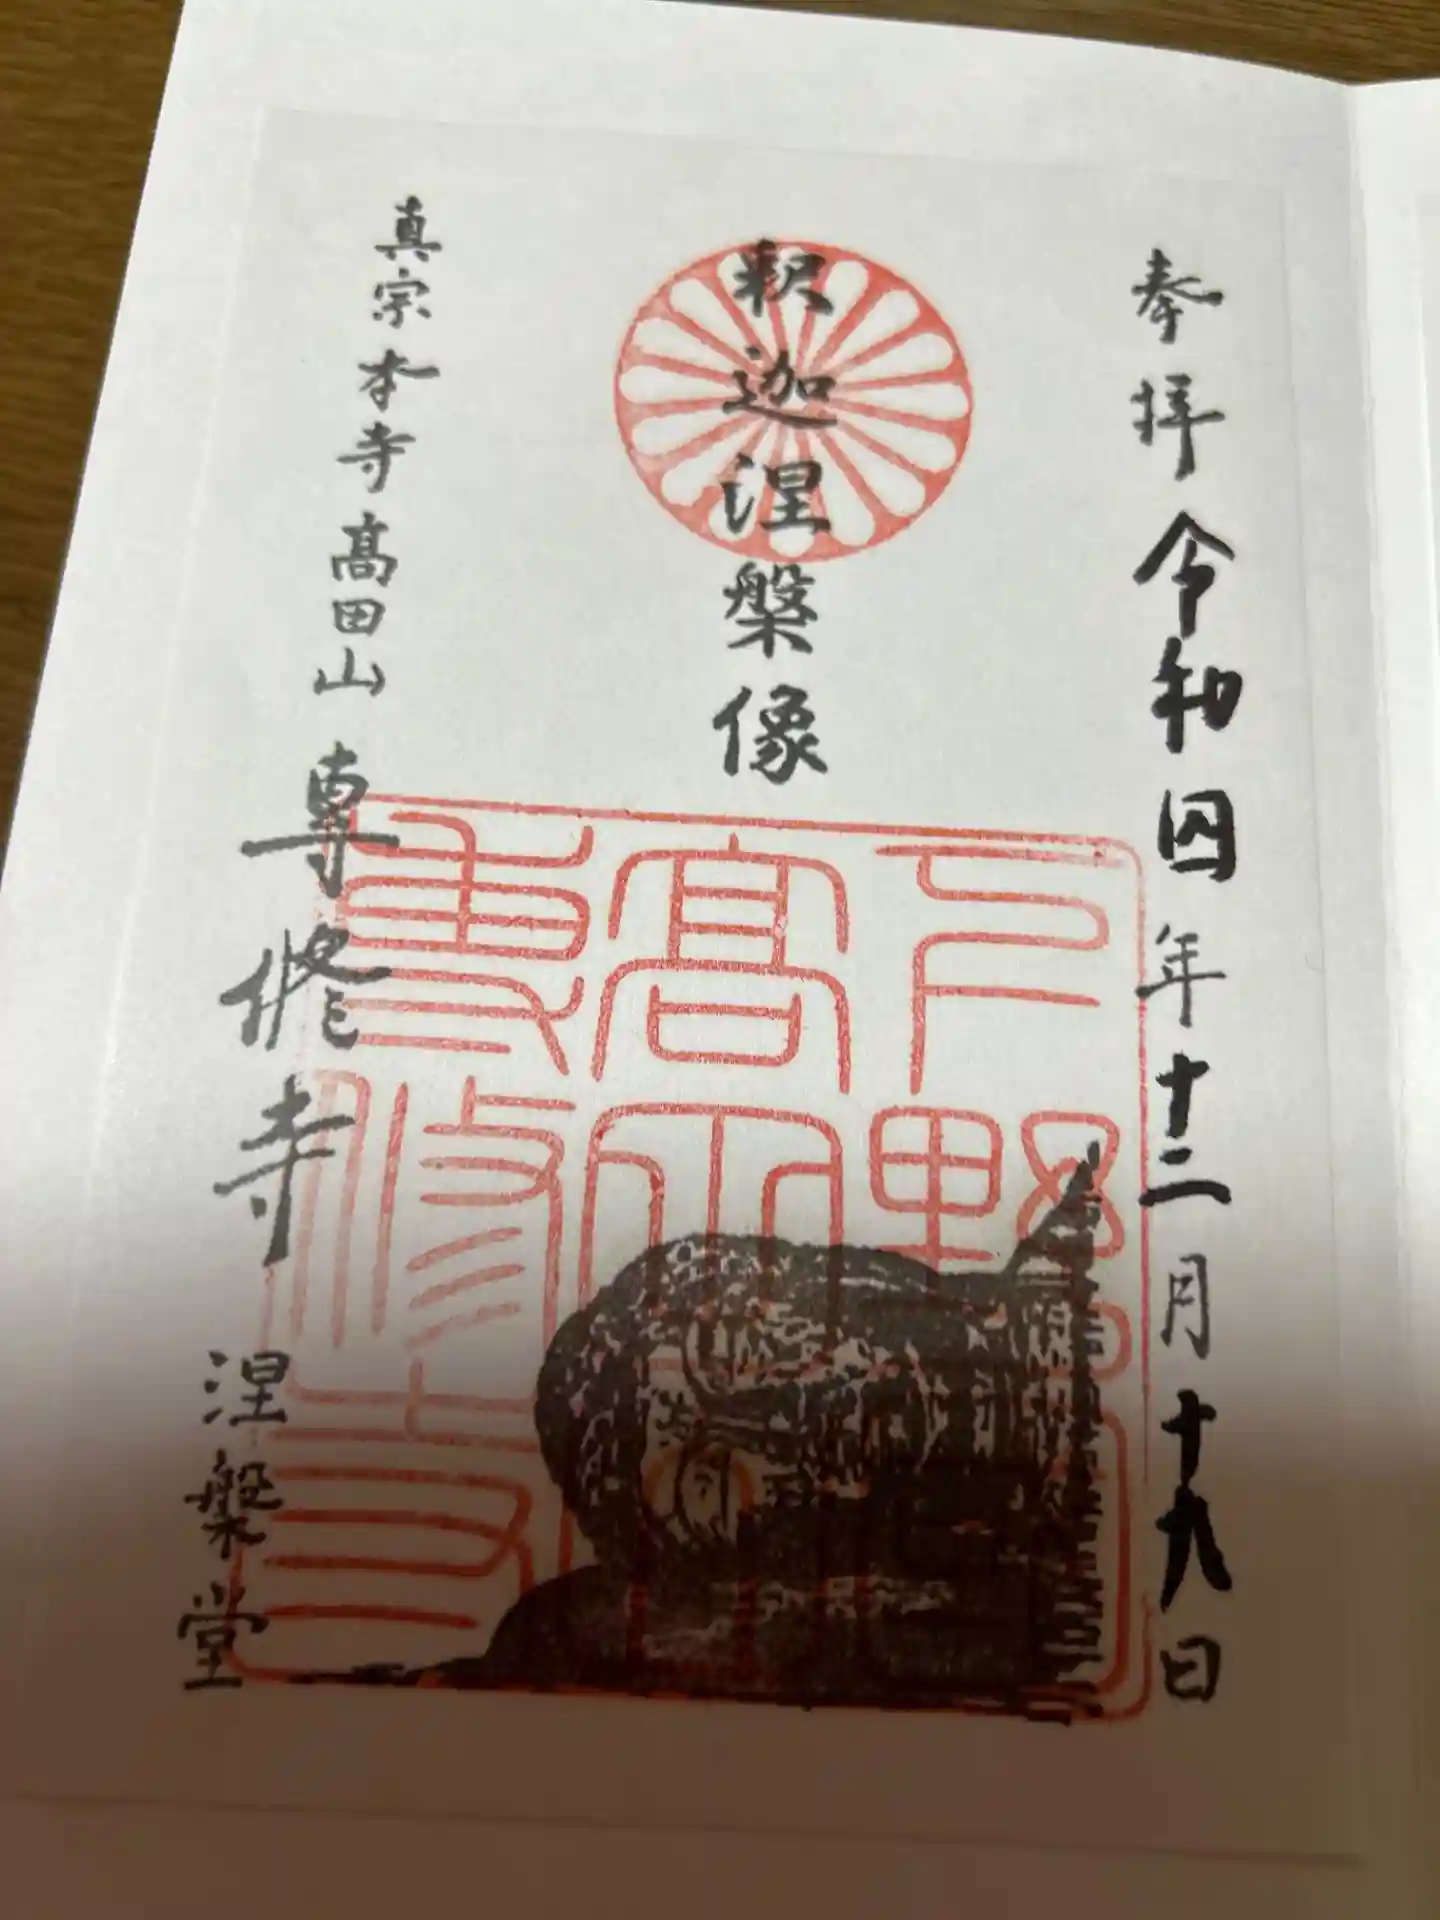 奉拝 令和四年十二月十九日
釈迦涅槃像
真宗本寺高田山 専修寺 涅槃堂
下野
高田山
専修寺